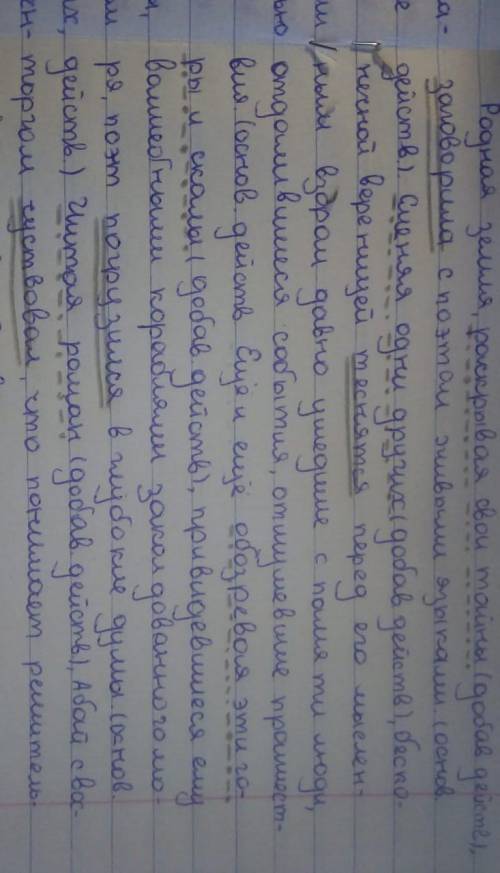 Родная земля, раскрывая свои тайны (добав действ),
а- заговорила с поэтом живыми языками (основ
е действ). Сменяя одни других (добав действ), беско-
нечной вереницей теснятся перед его мыслен-
ли ным взором давно ушедшие с памяти люди,
ью отдалившиеся события, отшумевшие прошест-
вия (основ. действ Ещё и ещё обозревая эти го-
ры и скалы (добав действ), привидевшиеся ему
ы, волшебными кораблями заколдованного мо-
м ря, поэт погрузился в глубокие думы (основ.
х, действ) Читая роман (добав действ), Абай с во-
ен- торгом чуствовал, что понимает решитель-